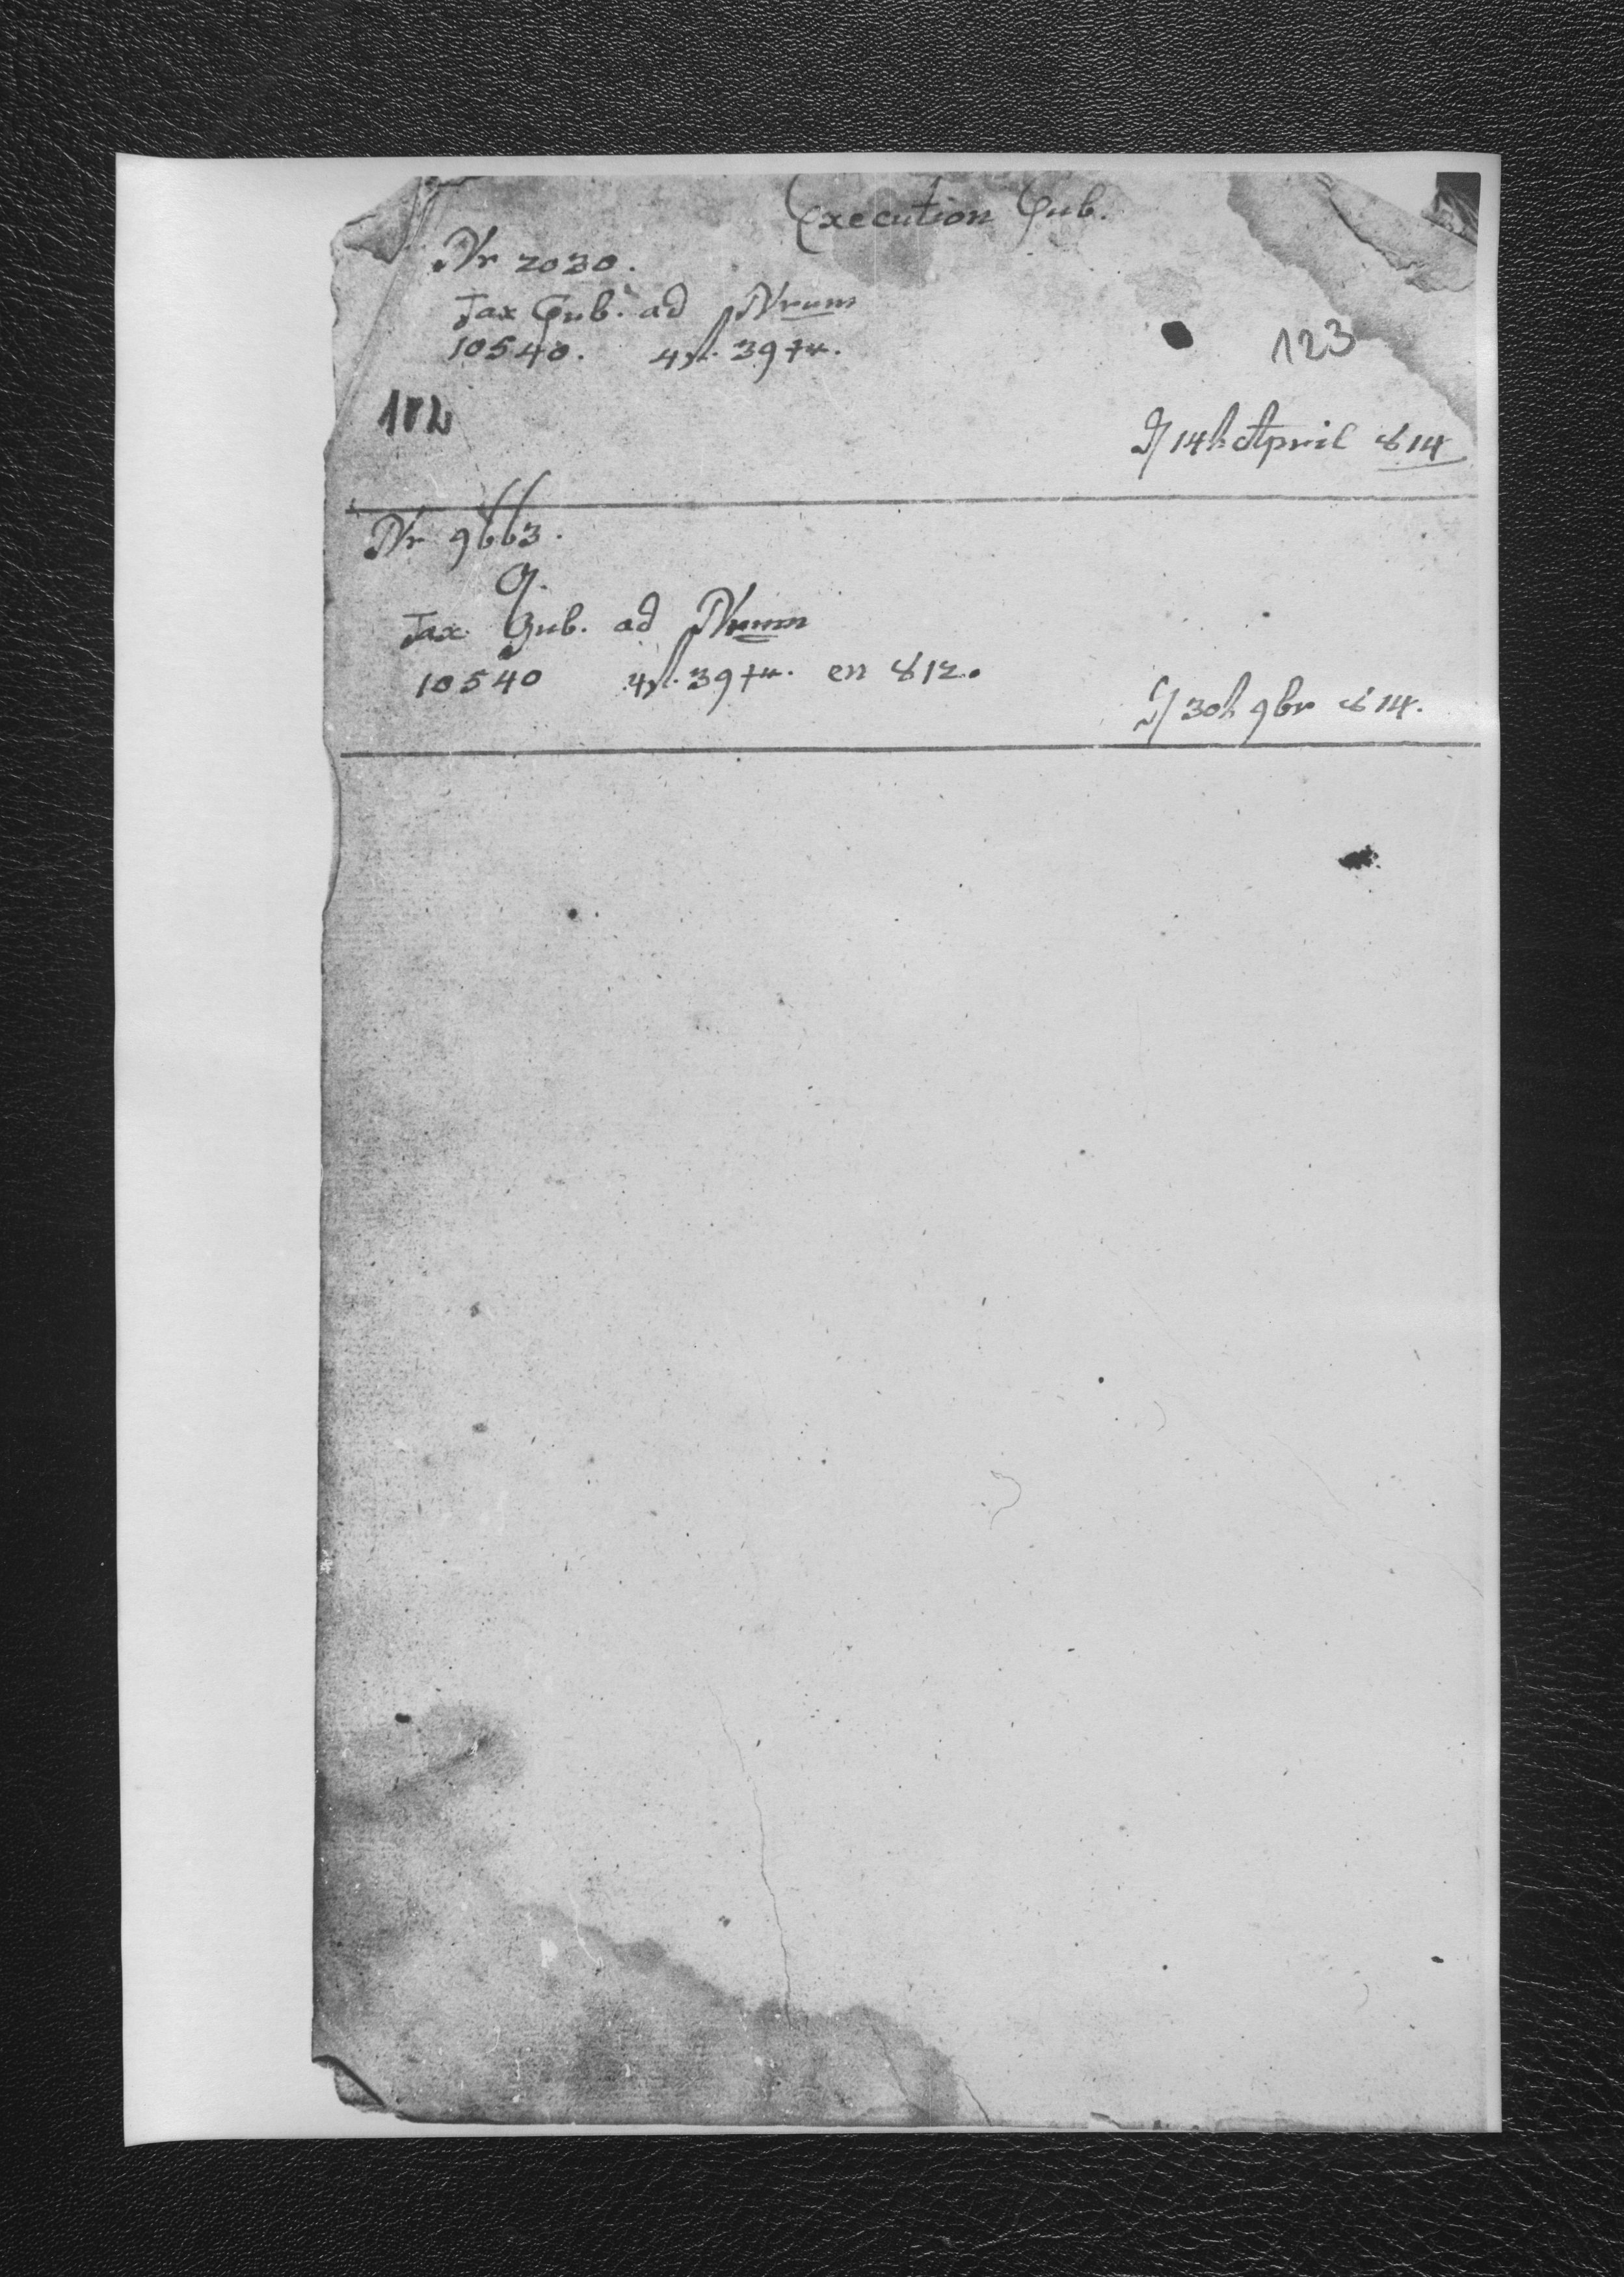 Execution Gub.
Nr 2030.
Tax Gub. ad Nrum
10540. 4f. 39 xr.
123
102
14 April 814
Nr 9663.
G.
Tax Gub. ad Nrum
10540 4f. 39 xr. en 812.
30 9br 814.